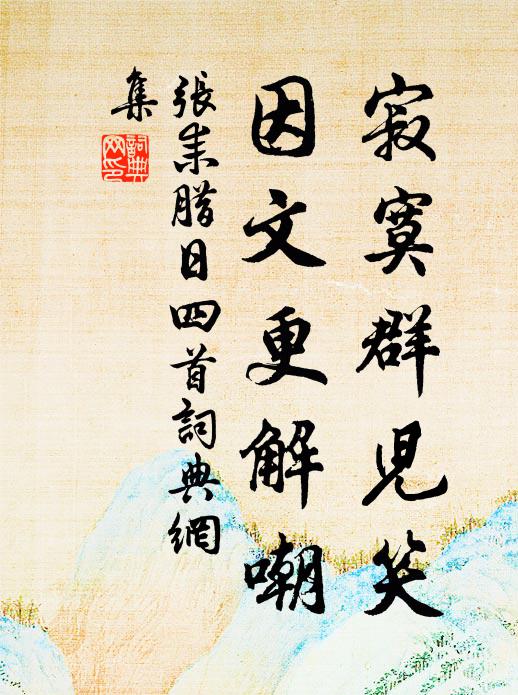 寂寞群児笑
因文更解嘲
張耒腊日四首詞典網
集
詞典網印